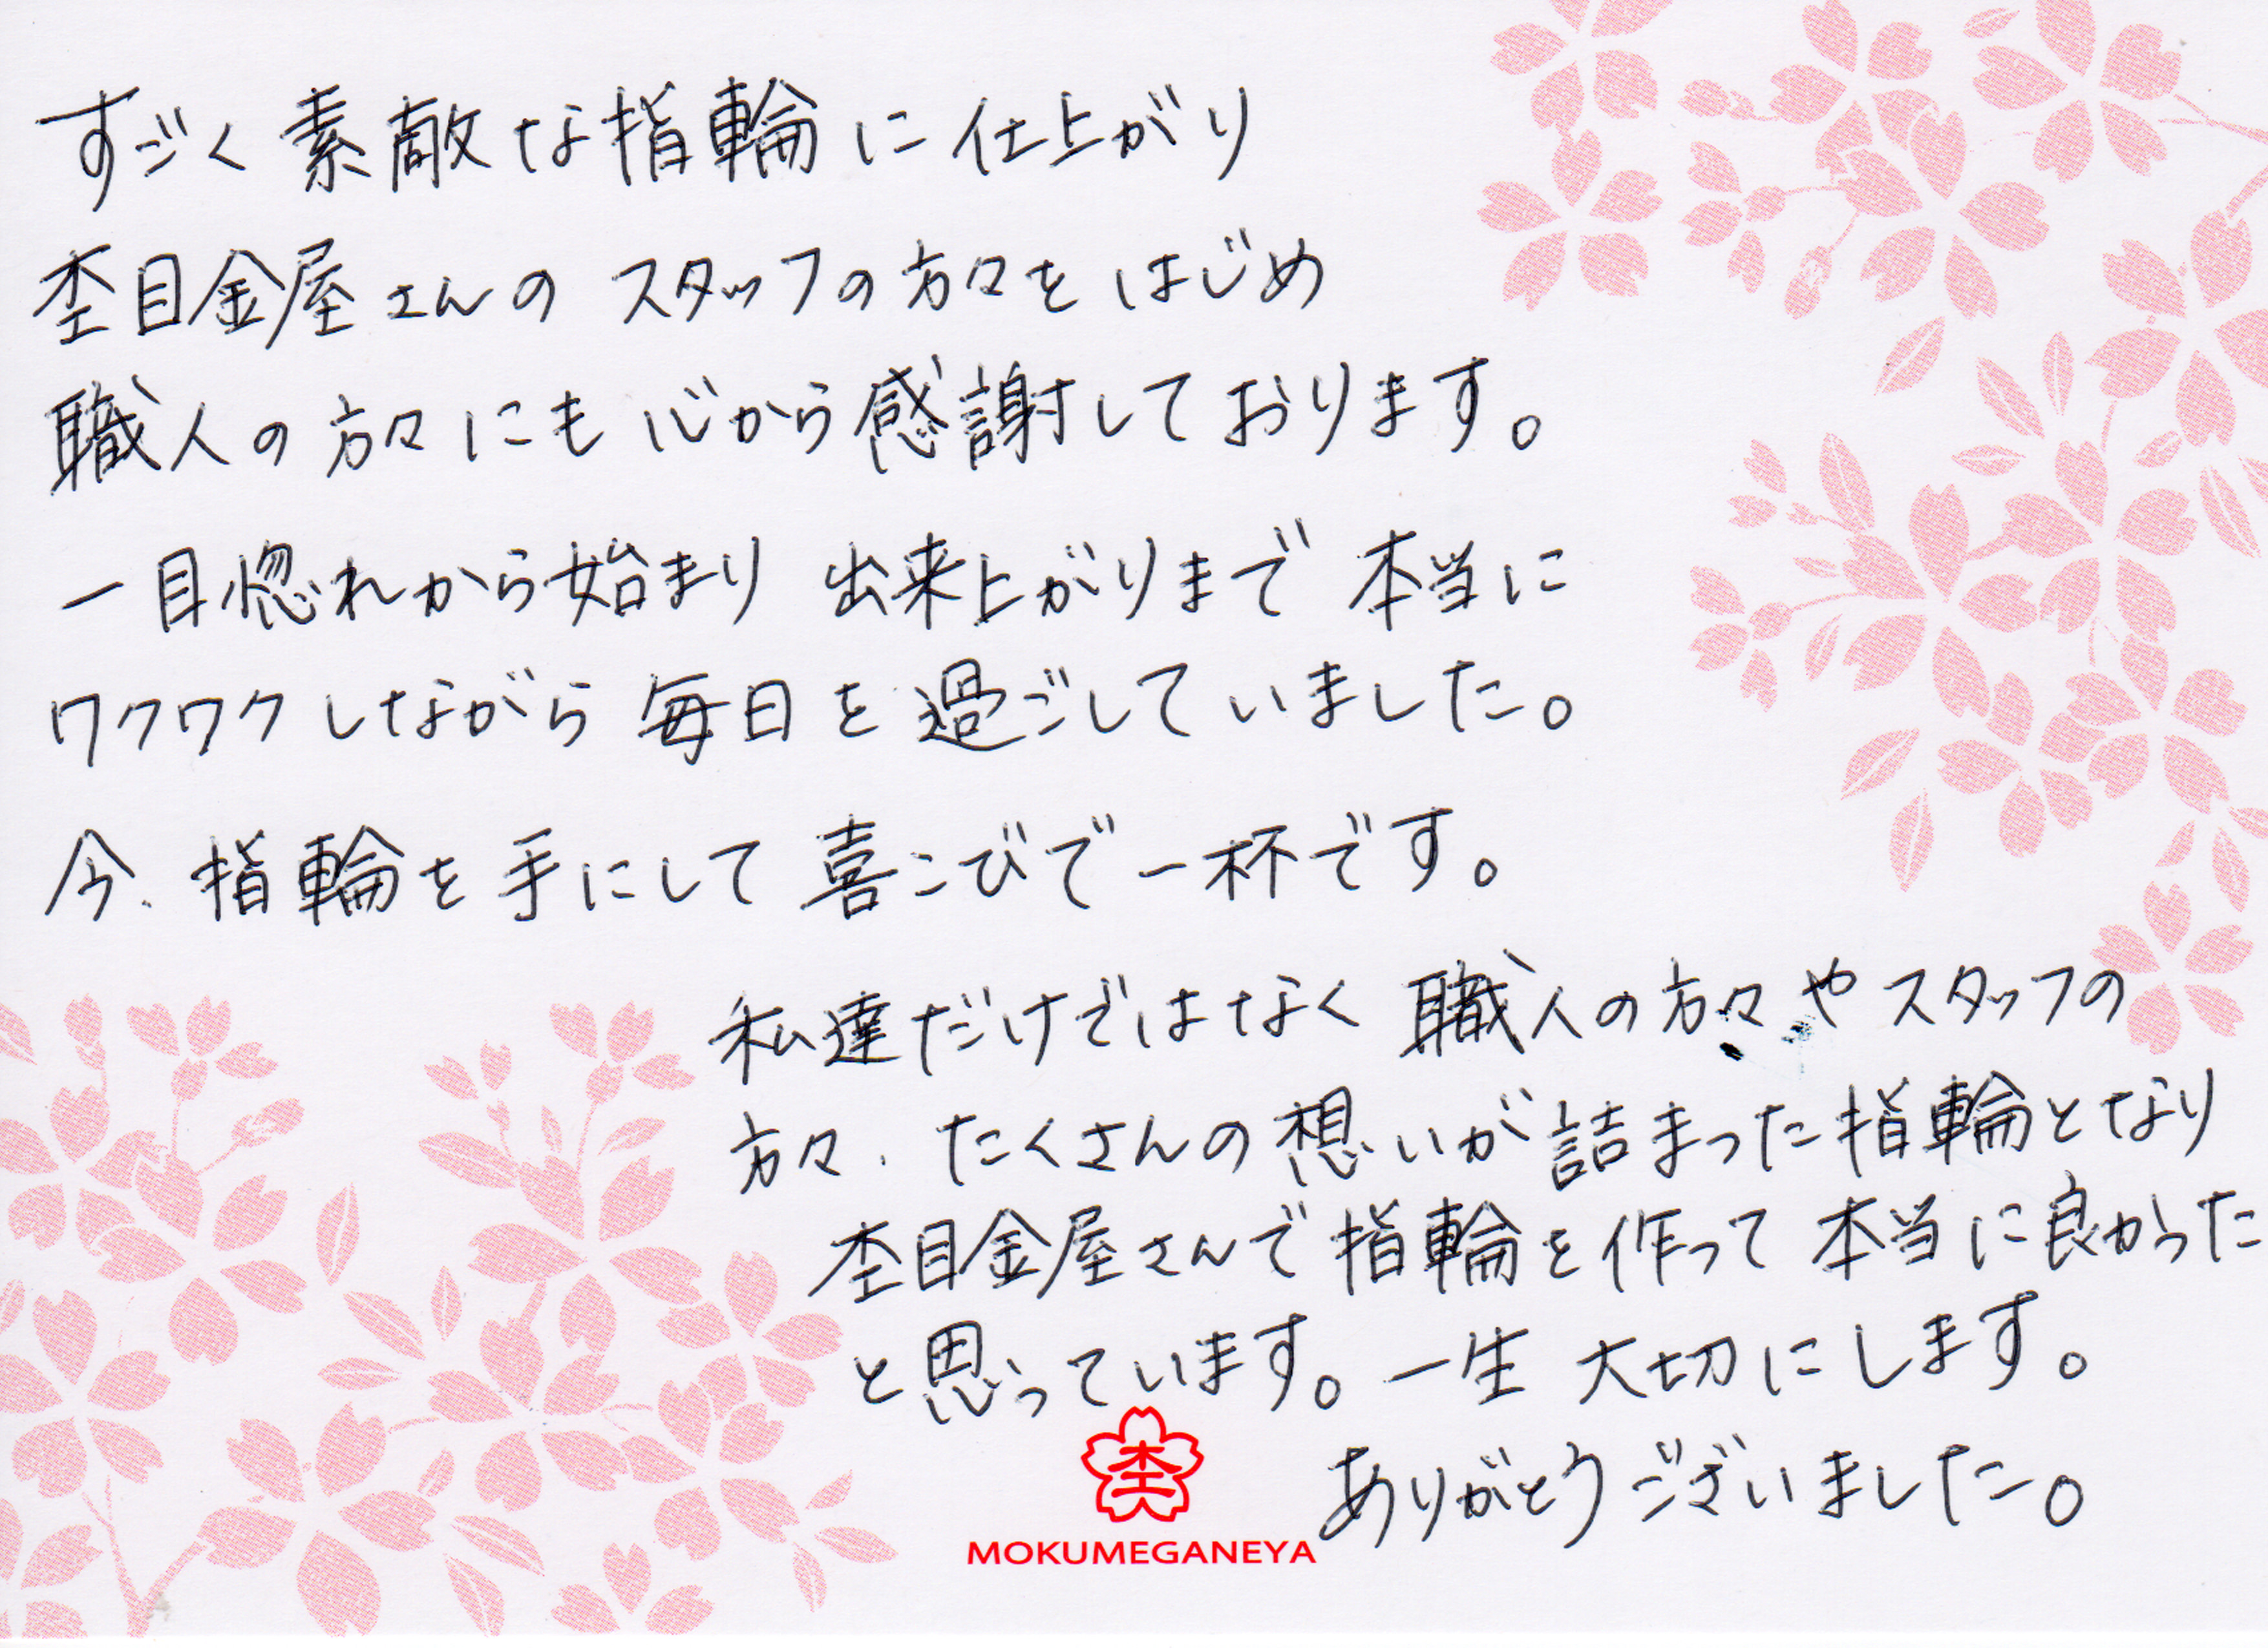 すごく素敵な指輪に仕上がり
杢目金屋さんの スタッフの方々を はじめ
職人の方々にも 心から感謝しております。
一目惚れから始まり 出来上がりまで 本当に
ワクワクしながら 毎日を過ごしていました。
今、指輪を手にして喜こびで一杯です。
私達だけではなく 職人の方々や スタッフの
方々、たくさんの想いが詰まった指輪となり
杢目金屋さんで指輪を作って 本当に良かった
と思っています。一生 大切にします。
ありがとうございました。
杢
MOKUMEGANEYA